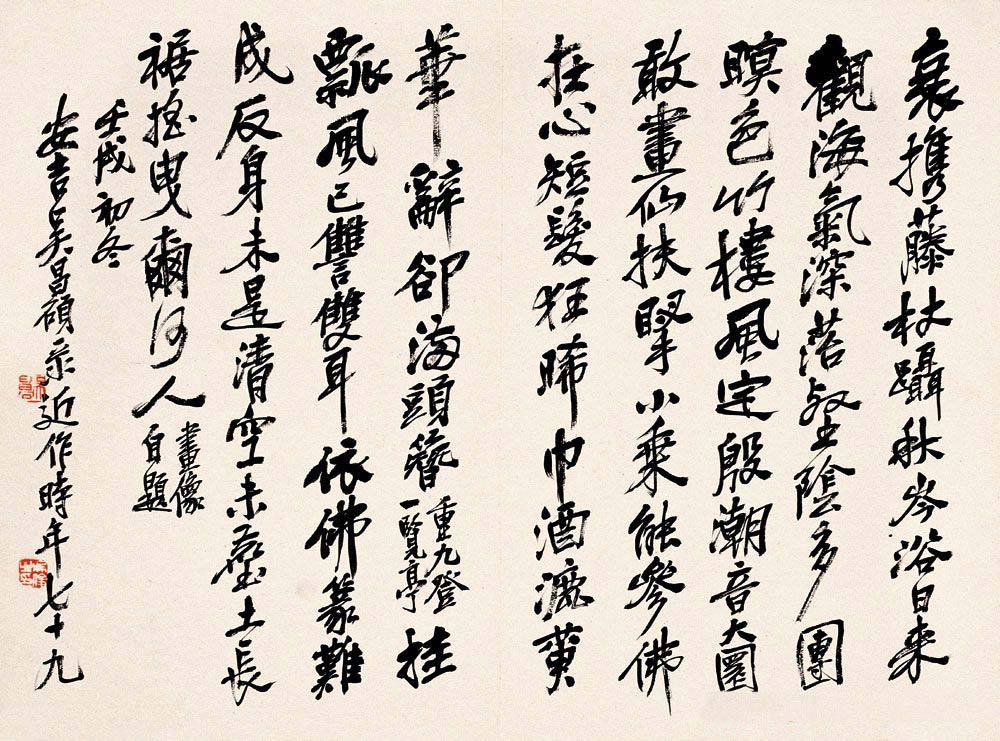 衰携藤杖躡秋岑浴日来
觀海氣深落壑陰多團
暝色竹樓風定殷潮音大圜
敢畫仙扶掔小乘能參佛
在心短髮狂晞巾酒漉黄
華辭卻滿頭簪
重九登
一覽亭
挂
瓢風已讐雙耳依佛篆難
成反身未是清空未土長
裾搖曳爾何人
畫像
自題
壬戌初冬
安吉吳昌碩录近作時年七十九